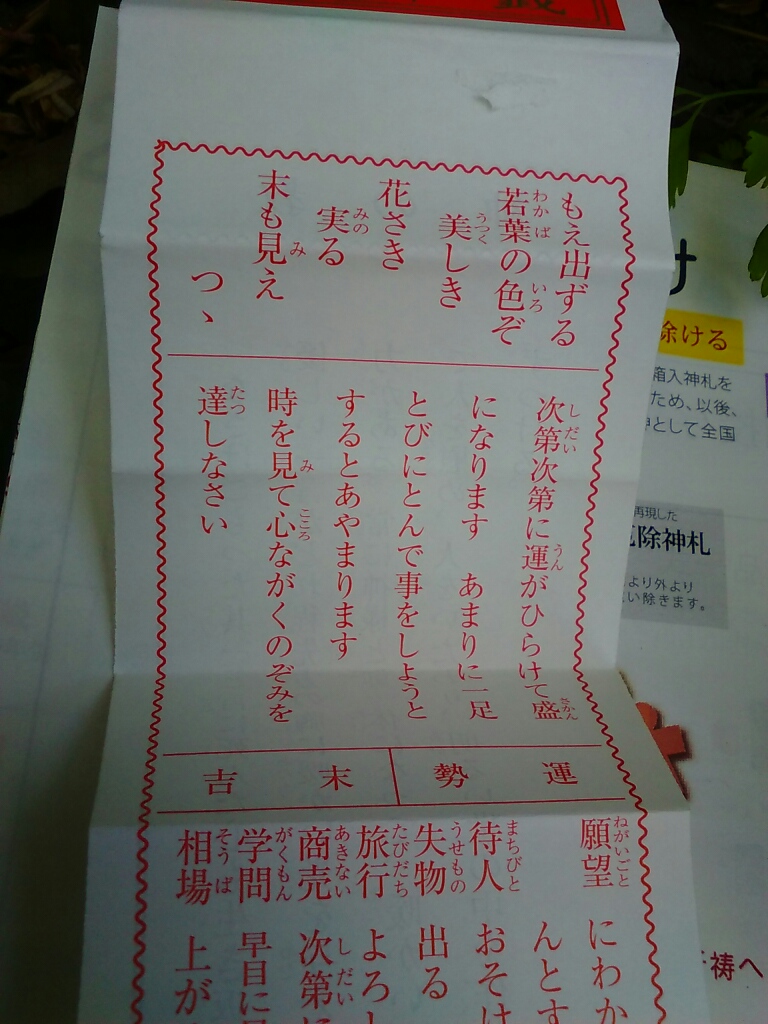 もえ出ずる
若葉の色ぞ
美しき
花さき
実る
末も見え
つゝ
次第次第に運がひらけて盛
になります あまりに一足
とびにとんで事をしようと
するとあやまります
時を見て心ながくのぞみを
達しなさい
運勢 末吉
願望 にわか
んとす
待人 おそけ
失物 出る
旅行 よろし
商売 次第に
学問 早目に
相場 上が
け
除ける
箱入神札を
ため、以後、
として全国
再現した
除神札
より外より
い除きます。
祷へ